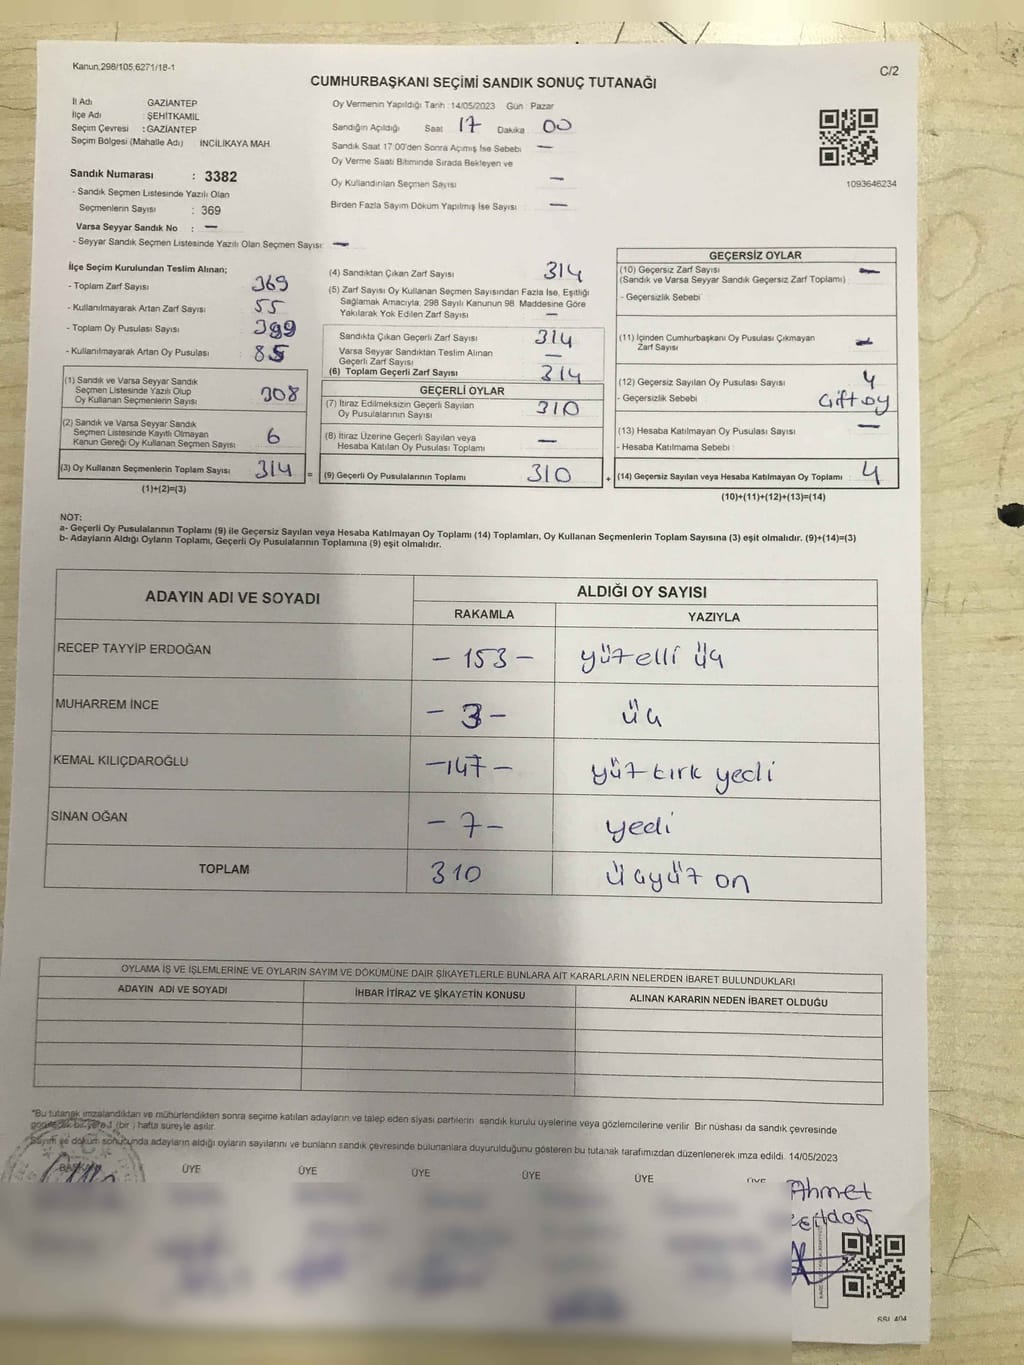 Kanun.298/105,6271/18-1
C/2
CUMHURBAŞKANI SEÇİMİ SANDIK SONUÇ TUTANAĞI
İl Adı GAZİANTEP
İlçe Adı : ŞEHİTKAMİL
Seçim Çevresi : GAZİANTEP
Seçim Bölgesi (Mahalle Adı) İNCİLİKAYA MAH.
Oy Vermenin Yapıldığı Tarih : 14/05/2023 Gün : Pazar
Sandığın Açıldığı Saat 17 Dakika 00
Sandık Saat 17:00'den Sonra Açımış İse Sebebi —
Oy Verme Saati Bitiminde Sırada Bekleyen ve
Oy Kullandırılan Seçmen Sayısı —
Birden Fazla Sayım Döküm Yapılmış İse Sayısı —
1093646234
Sandık Numarası : 3382
- Sandık Seçmen Listesinde Yazılı Olan
Seçmenlerin Sayısı : 369
Varsa Seyyar Sandık No : —
- Seyyar Sandık Seçmen Listesinde Yazılı Olan Seçmen Sayısı: —
İlçe Seçim Kurulundan Teslim Alınan;
- Toplam Zarf Sayısı 369
- Kullanılmayarak Artan Zarf Sayısı 55
- Toplam Oy Pusulası Sayısı 399
- Kullanılmayarak Artan Oy Pusulası 85
(1) Sandık ve Varsa Seyyar Sandık
Seçmen Listesinde Yazılı Olup
Oy Kullanan Seçmenlerin Sayısı 308
(2) Sandık ve Varsa Seyyar Sandık
Seçmen Listesinde Kayıtlı Olmayan
Kanun Gereği Oy Kullanan Seçmen Sayısı 6
(3) Oy Kullanan Seçmenlerin Toplam Sayısı 314 =
(1)+(2)=(3)
(4) Sandıktan Çıkan Zarf Sayısı 314
(5) Zarf Sayısı Oy Kullanan Seçmen Sayısından Fazla İse, Eşitliği
Sağlamak Amacıyla, 298 Sayılı Kanunun 98. Maddesine Göre
Yakılarak Yok Edilen Zarf Sayısı —
Sandıkta Çıkan Geçerli Zarf Sayısı 314
Varsa Seyyar Sandıktan Teslim Alınan
Geçerli Zarf Sayısı —
(6) Toplam Geçerli Zarf Sayısı 314
GEÇERLİ OYLAR
(7) İtiraz Edilmeksizin Geçerli Sayılan
Oy Pusulalarının Sayısı 310
(8) İtiraz Üzerine Geçerli Sayılan veya
Hesaba Katılan Oy Pusulası Toplamı —
(9) Geçerli Oy Pusulalarının Toplamı 310 +
GEÇERSİZ OYLAR
(10) Geçersiz Zarf Sayısı —
(Sandık ve Varsa Seyyar Sandık Geçersiz Zarf Toplamı)
- Geçersizlik Sebebi
(11) İçinden Cumhurbaşkanı Oy Pusulası Çıkmayan
Zarf Sayısı —
(12) Geçersiz Sayılan Oy Pusulası Sayısı 4
- Geçersizlik Sebebi Çift oy
(13) Hesaba Katılmayan Oy Pusulası Sayısı —
- Hesaba Katılmama Sebebi :
(14) Geçersiz Sayılan veya Hesaba Katılmayan Oy Toplamı 4
(10)+(11)+(12)+(13)=(14)
NOT:
a- Geçerli Oy Pusulalarının Toplamı (9) ile Geçersiz Sayılan veya Hesaba Katılmayan Oy Toplamı (14) Toplamları, Oy Kullanan Seçmenlerin Toplam Sayısına (3) eşit olmalıdır. (9)+(14)=(3)
b- Adayların Aldığı Oyların Toplamı, Geçerli Oy Pusulalarının Toplamına (9) eşit olmalıdır.
ADAYIN ADI VE SOYADI
ALDIĞI OY SAYISI
RAKAMLA YAZIYLA
RECEP TAYYİP ERDOĞAN - 153 - yüzelli üç
MUHARREM İNCE - 3 - üç
KEMAL KILIÇDAROĞLU - 147 - yüz kırk yedi
SİNAN OĞAN - 7 - yedi
TOPLAM 310 üçyüz on
OYLAMA İŞ VE İŞLEMLERİNE VE OYLARIN SAYIM VE DÖKÜMÜNE DAİR ŞİKAYETLERLE BUNLARA AİT KARARLARIN NELERDEN İBARET BULUNDUKLARI
ADAYIN ADI VE SOYADI İHBAR İTİRAZ VE ŞİKAYETİN KONUSU ALINAN KARARIN NEDEN İBARET OLDUĞU
*Bu tutanak imzalandıktan ve mühürlendikten sonra seçime katılan adayların ve talep eden siyasi partilerin sandık kurulu üyelerine veya gözlemcilerine verilir. Bir nüshası da sandık çevresinde
bir yere 1 (bir) hafta süreyle asılır.
Sayım ve döküm sonucunda adayların aldığı oyların sayılarını ve bunların sandık çevresinde bulunanlara duyurulduğunu gösteren bu tutanak tarafımızdan düzenlenerek imza edildi. 14/05/2023
BAŞKAN ÜYE ÜYE ÜYE ÜYE ÜYE ÜYE
Ahmet